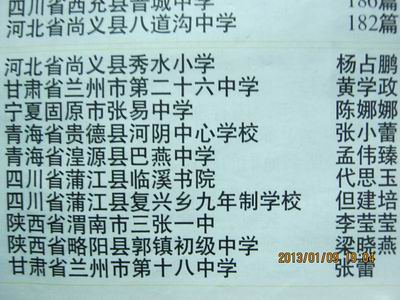 四川省西充县晋城中学 186篇
河北省尚义县八道沟中学 182篇
河北省尚义县秀水小学 杨占鹏
甘肃省兰州市第二十六中学 黄学政
宁夏固原市张易中学 陈娜娜
青海省贵德县河阴中心学校 张小蕾
青海省湟源县巴燕中学 孟伟臻
四川省蒲江县临溪书院 代思玉
四川省蒲江县复兴乡九年制学校 但建培
陕西省渭南市三张一中 李莹莹
陕西省略阳县郭镇初级中学 梁晓燕
甘肃省兰州市第十八中学 张蕾
2013/01/09 19:04